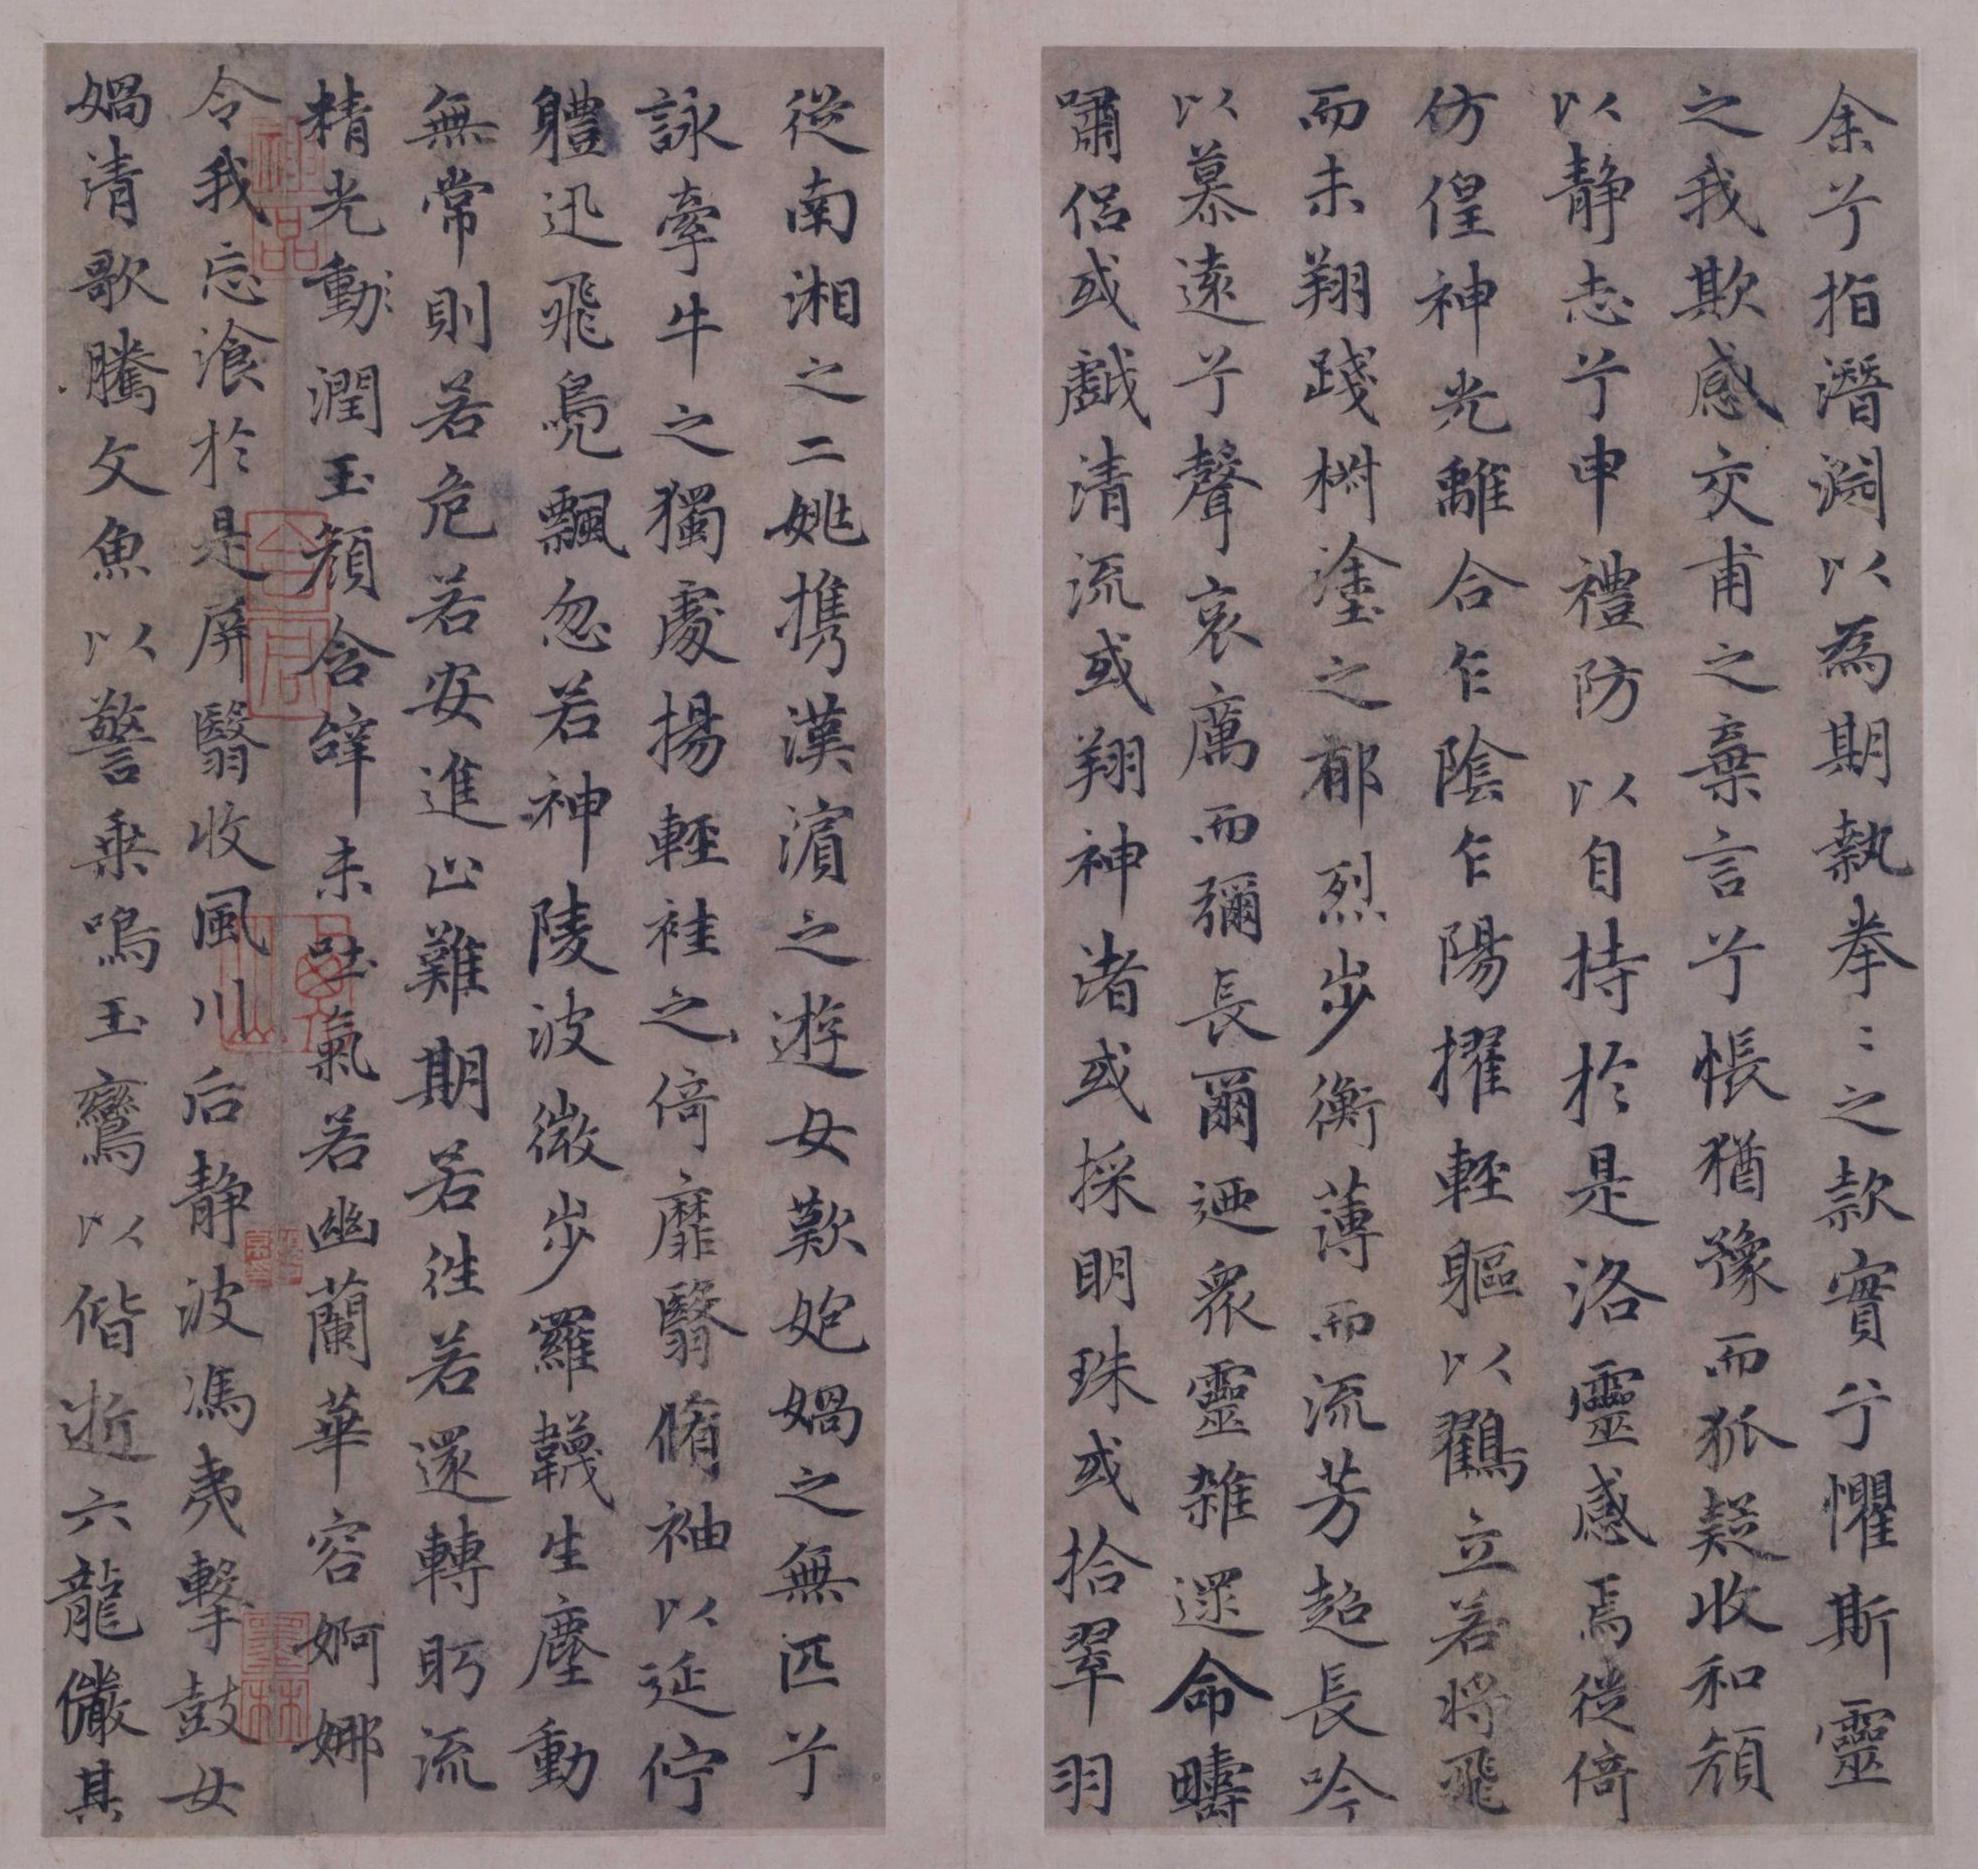 余兮指潛淵以為期執拳〻之款實兮懼斯靈
之我欺感交甫之棄言兮悵猶豫而狐疑收和顏
以静志兮申禮防以自持於是洛靈感焉從倚
仿偟神光離合乍陰乍陽擢輕軀以鸛立若將飛
而未翔踐椒塗之郁烈步衡薄而流芳超長吟
以慕遠兮聲哀厲而彌長爾迺衆靈雜遝命疇
嘯侶或戲清流或翔神渚或採明珠或拾翠羽
從南湘之二姚携漢濱之遊女歎匏媧之無匹兮
詠牽牛之獨處揚輕袿之倚靡翳脩袖以延佇
軆迅飛鳧飄忽若神陵波微步羅韈生塵動
無常則若危若安進止難期若往若還轉眄流
精光動潤玉顏含辭未吐氣若幽蘭華容婀娜
令我忘飡於是屏翳收風川后静波馮夷擊鼓女
媧清歌騰文魚以警乗鳴玉鸞以偕逝六龍儼其
神品
墨林